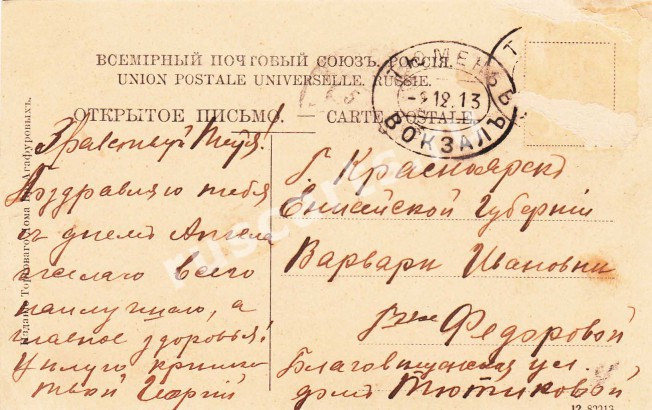 ВСЕМІРНЫЙ ПОЧТОВЫЙ СОЮЗЪ. РОССІЯ.
UNION POSTALE UNIVERSELLE. RUSSIE.
ОТКРЫТОЕ ПИСЬМО. — CARTE POSTALE.
ТЮМЕНЬ
12.13
ВОКЗАЛЪ
Здравствуй
Поздравляю тебя
съ днемъ Ангела
желаю всего
наилучшаго, а
главное здоровья!
Цѣлую крѣпко
твой Георгій
Г. Красноярскъ
Енисейской Губерніи
Варвари Ивановни
Федоровой
Благовѣщенская ул.
домъ Тютиковой
Изданіе Торговаго Дома Агафуровыхъ.
12 82213
ruscards.ru